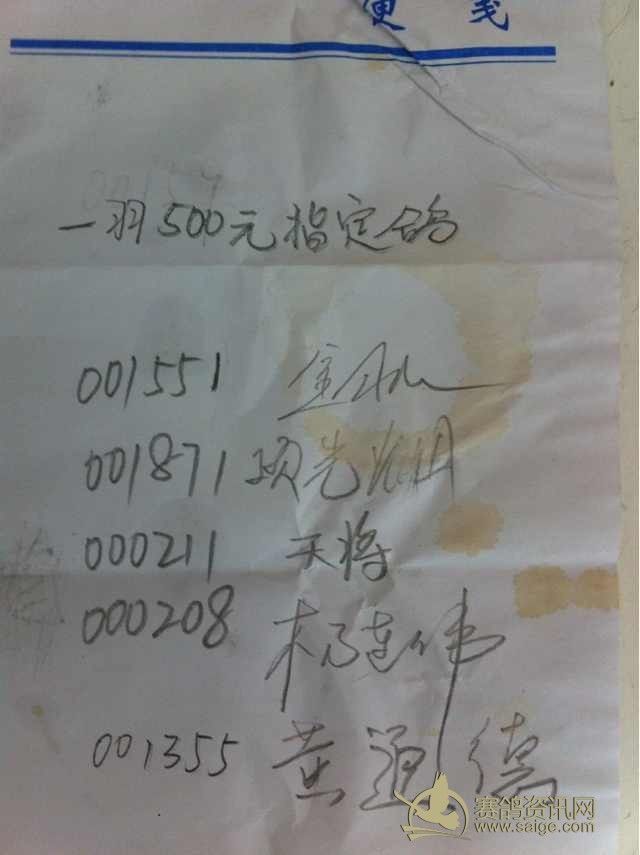 便 笺
一羽500元指定鸽
001551 金
001871 项先
000211 天将
000208 杨连伟
001355 黄通德
赛鸽资讯网
www.saige.com